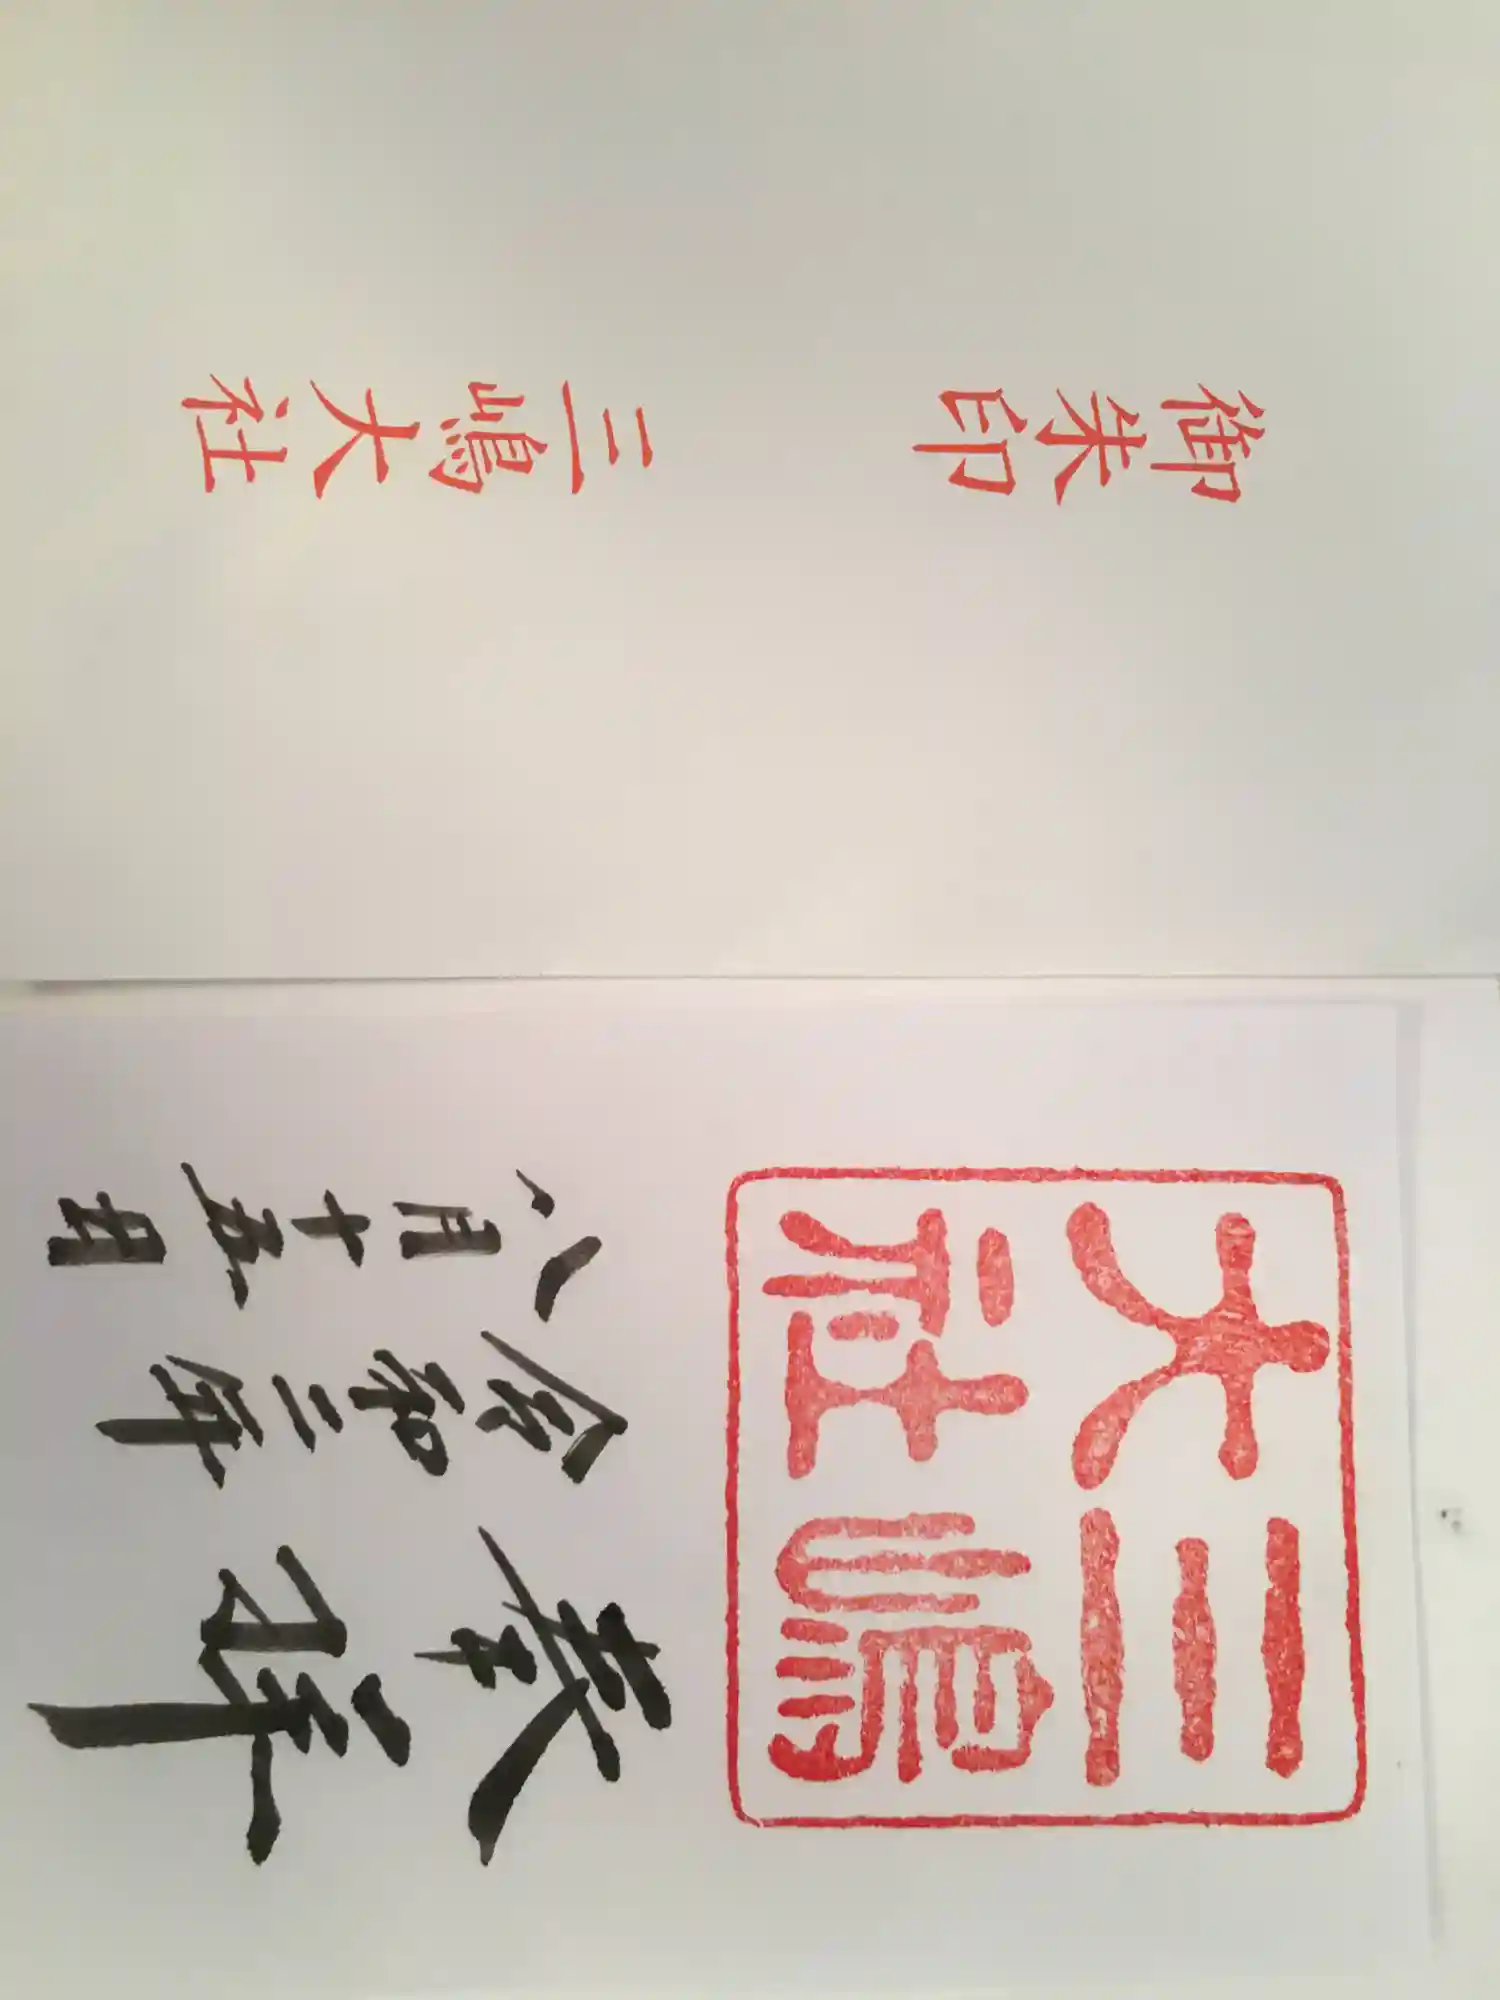 三嶋
大社
奉拝
令和二年
八月十五日
御朱印
三嶋大社